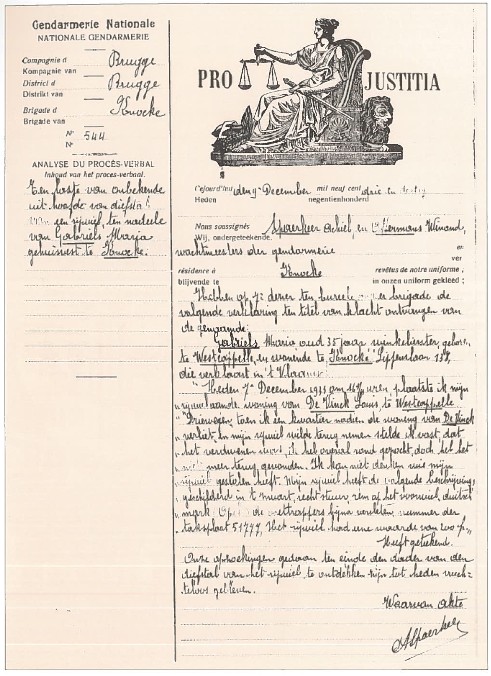 Gendarmerie Nationale
NATIONALE GENDARMERIE
Compagnie d
Kompagnie van
Brugge
District d
Distrikt van
Brugge
Brigade d
Brigade van
Knocke
N°
N° 544
ANALYSE DU PROCÈS-VERBAL
Inhoud van het proces-verbaal.
Ten laste van onbekende
uit hoofde van diefstal
van een rijwiel, ten nadeele
van Gabriels Maria
gehuisvest te Knocke.
PRO JUSTITIA
Cejourd'hui den 7n December mil neuf cent drie en dertig
Heden negentienhonderd
Nous soussignés Spaerkeer Achiel, en Hermans Winand,
Wij, ondergeteekende
wachtmeesters der gendarmerie
résidence à Knocke revêtus de notre uniforme,
blijvende te in onzen uniform gekleed;
Hebben op 7n dezer ten bureele onzer brigade de
volgende verklaring ten titel van klacht ontvangen van
de genaamde:
Gabriels Maria oud 35 jaar winkelierster, geboren
te Westcappelle, en wonende te Knocke Lippenslaan 137,
die verklaart in 't Vlaamsch:
"Heden 7n December 1933 om 16 1/2 uren plaatste ik mijn
rijwiel aan de woning van De Vinck Louis, te Westcappelle
"Driewegen, toen ik een kwartier nadien de woning van De Vinck
verliet, en mijn rijwiel wilde terug nemen stelde ik vast dat
het verdwenen was, ik heb overal rond gezocht, doch het het
niet meer terug gevonden. Ik kan niet denken wie mijn
rijwiel gestolen heeft. Mijn rijwiel heeft de volgende beschrijving:
geschilderd in 't zwart, recht stuur, rem op het voorwiel, duitsch
merk. Op de voettrappers fijne worklen, nummer der
taksplaat 51777, Het rijwiel had eene waarde van 200 fr.
Heeft geteekend.
Onze opzoekingen gedaan ten einde den dader van den
diefstal van het rijwiel te ontdekken zijn tot heden vruch-
teloos gebleven.
Waarvan Akte